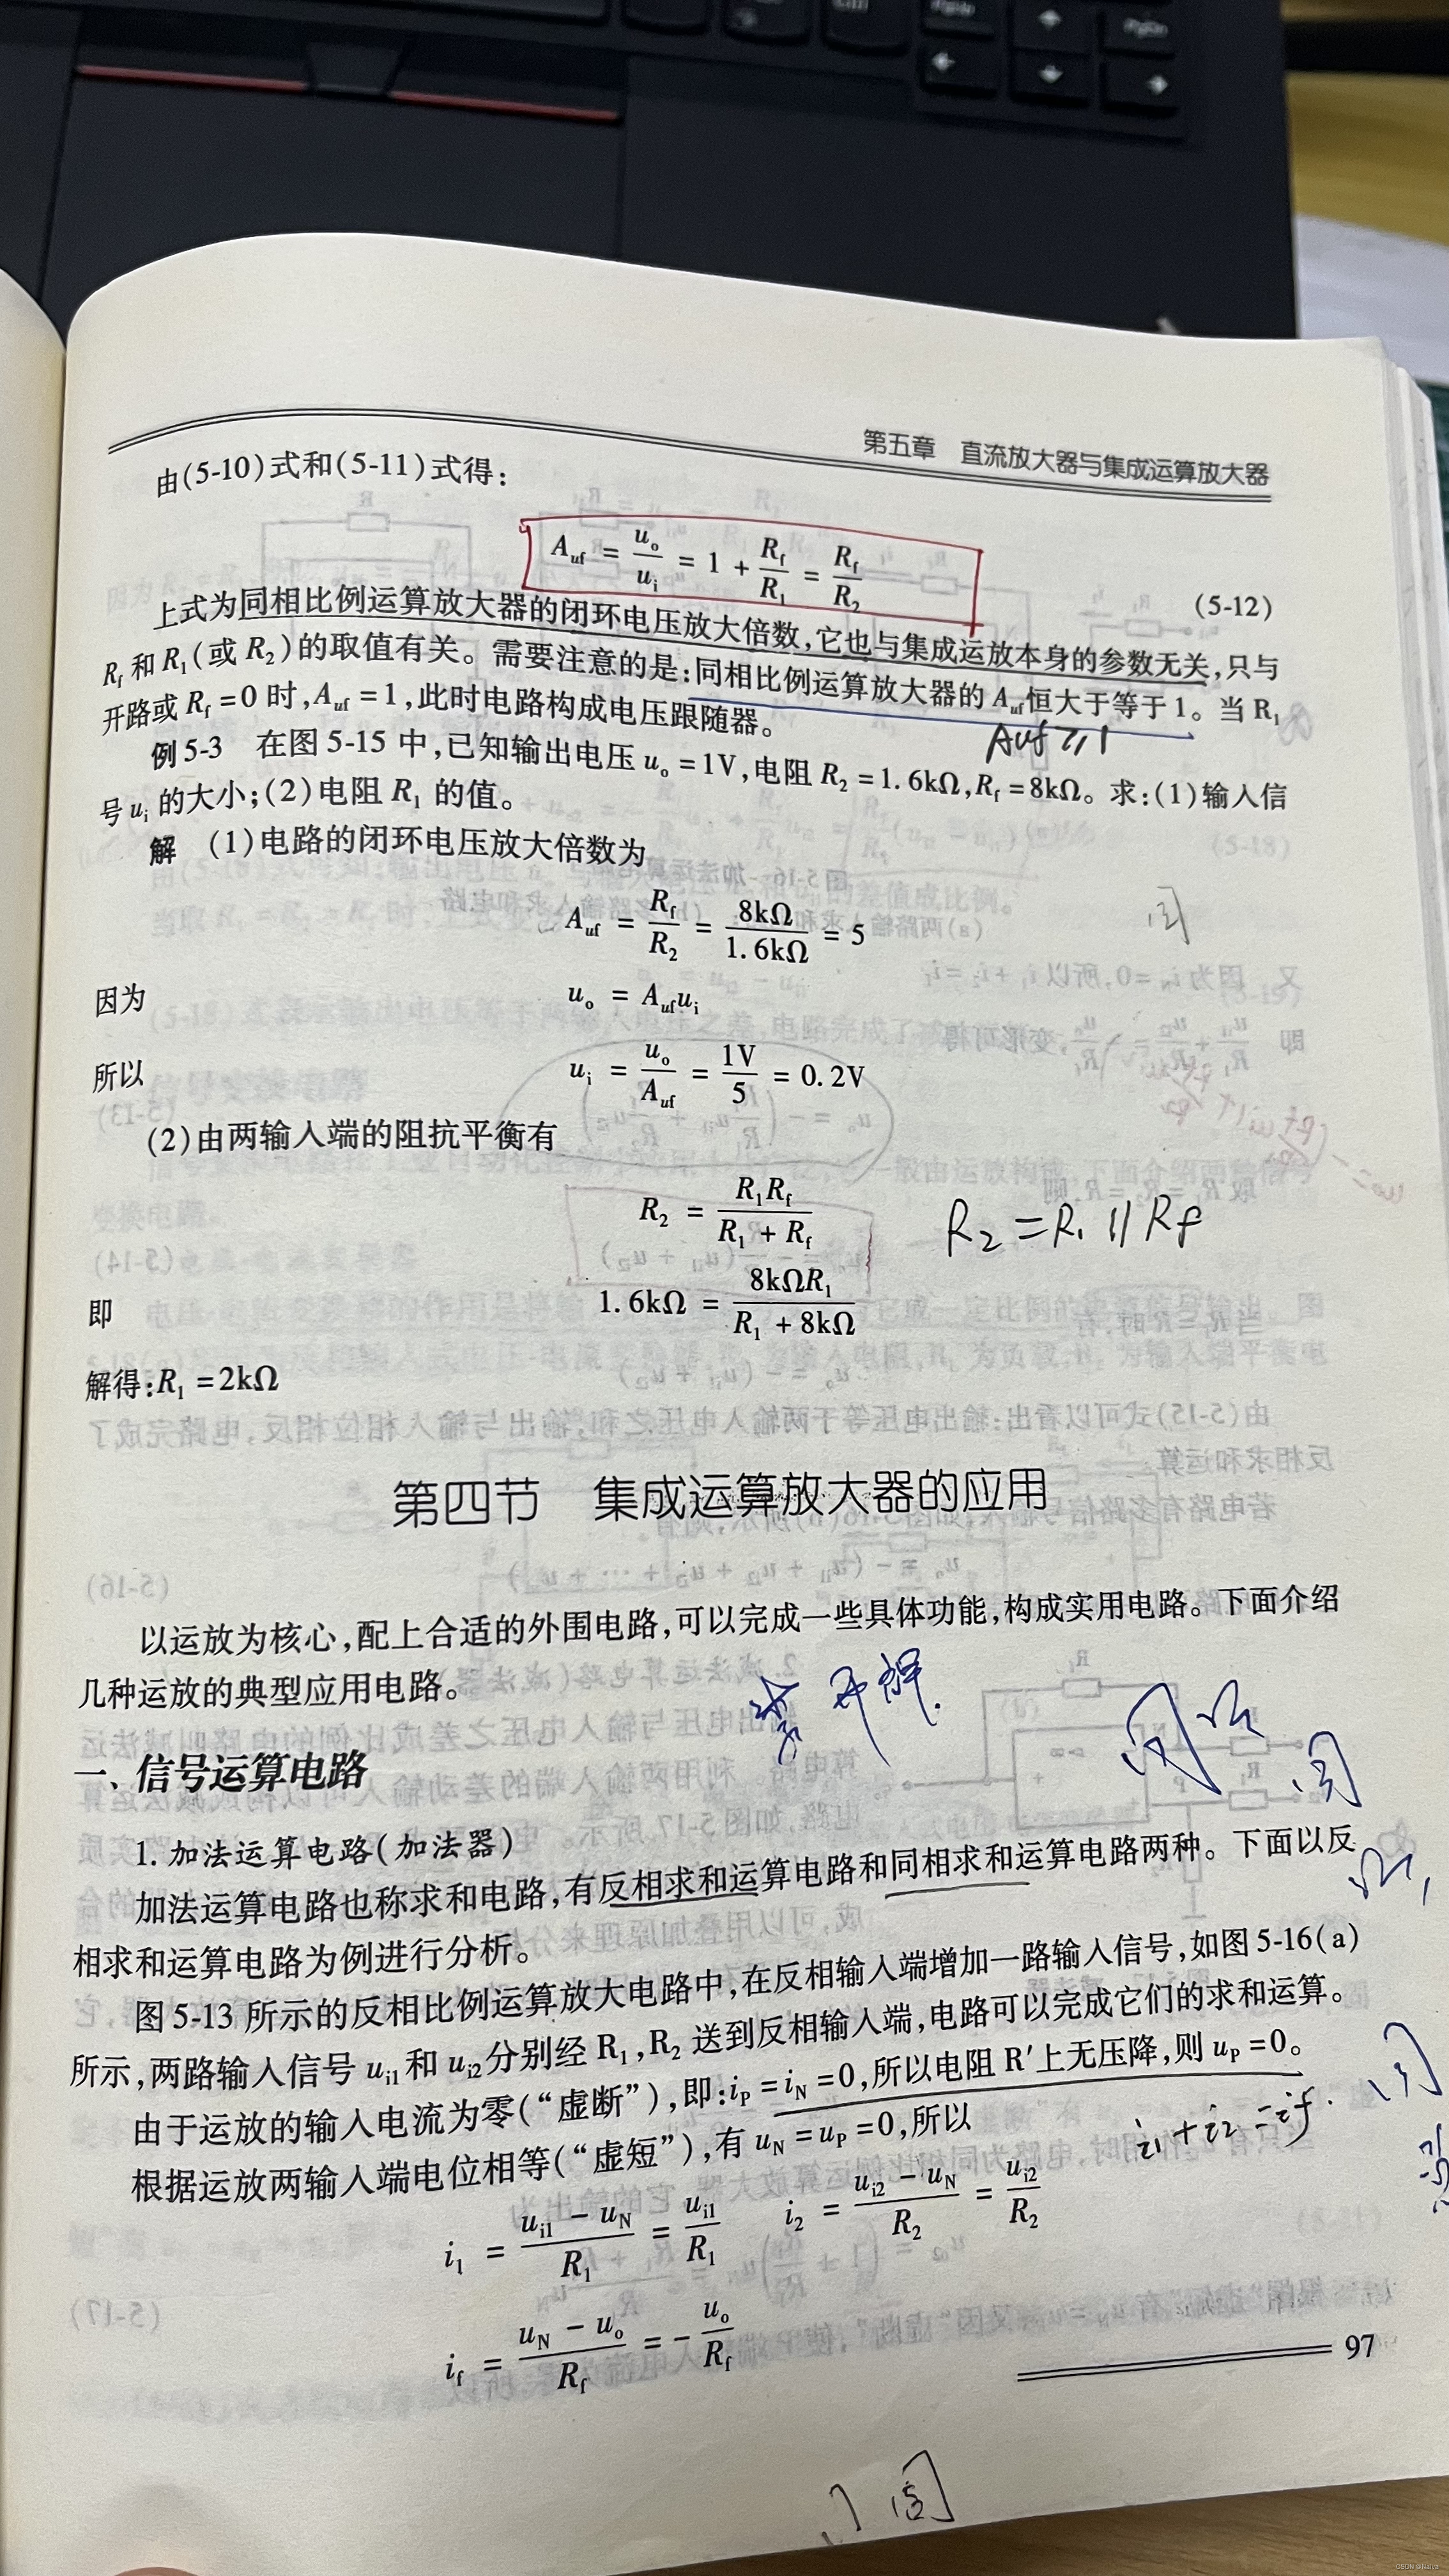 第五章 直流放大器与集成运算放大器
由(5-10)式和(5-11)式得:
A_uf = u_o/u_i = 1 + R_f/R_1 = R_f/R_2 (5-12)
上式为同相比例运算放大器的闭环电压放大倍数,它也与集成运放本身的参数无关,只与
R_f 和 R_1(或 R_2)的取值有关。需要注意的是:同相比例运算放大器的 A_uf 恒大于等于 1。当 R_1
开路或 R_f =0 时,A_uf =1,此时电路构成电压跟随器。
Auf ≥ 1
例 5-3 在图 5-15 中,已知输出电压 u_o =1V,电阻 R_2 =1.6kΩ,R_f =8kΩ。求:(1)输入信
号 u_i 的大小;(2)电阻 R_1 的值。
解 (1)电路的闭环电压放大倍数为
A_uf = R_f/R_2 = 8kΩ/1.6kΩ = 5
因为 u_o = A_uf u_i
所以 u_i = u_o/A_uf = 1V/5 = 0.2V
(2)由两输入端的阻抗平衡有
R_2 = R_1R_f/(R_1 + R_f) R_2 = R_1 // Rf
即 1.6kΩ = 8kΩR_1/(R_1 + 8kΩ)
解得:R_1 =2kΩ
第四节 集成运算放大器的应用
以运放为核心,配上合适的外围电路,可以完成一些具体功能,构成实用电路。下面介绍
几种运放的典型应用电路。
一、信号运算电路
1. 加法运算电路(加法器)
加法运算电路也称求和电路,有反相求和运算电路和同相求和运算电路两种。下面以反
相求和运算电路为例进行分析。
图 5-13 所示的反相比例运算放大电路中,在反相输入端增加一路输入信号,如图 5-16(a)
所示,两路输入信号 u_i1 和 u_i2 分别经 R_1,R_2 送到反相输入端,电路可以完成它们的求和运算。
由于运放的输入电流为零(“虚断”),即:i_P =i_N =0,所以电阻 R′上无压降,则 u_P =0。
根据运放两输入端电位相等(“虚短”),有 u_N =u_P =0,所以
i_1 + i_2 = i_f
i_1 = (u_i1 - u_N)/R_1 = u_i1/R_1 i_2 = (u_i2 - u_N)/R_2 = u_i2/R_2
i_f = (u_N - u_o)/R_f = - u_o/R_f
97